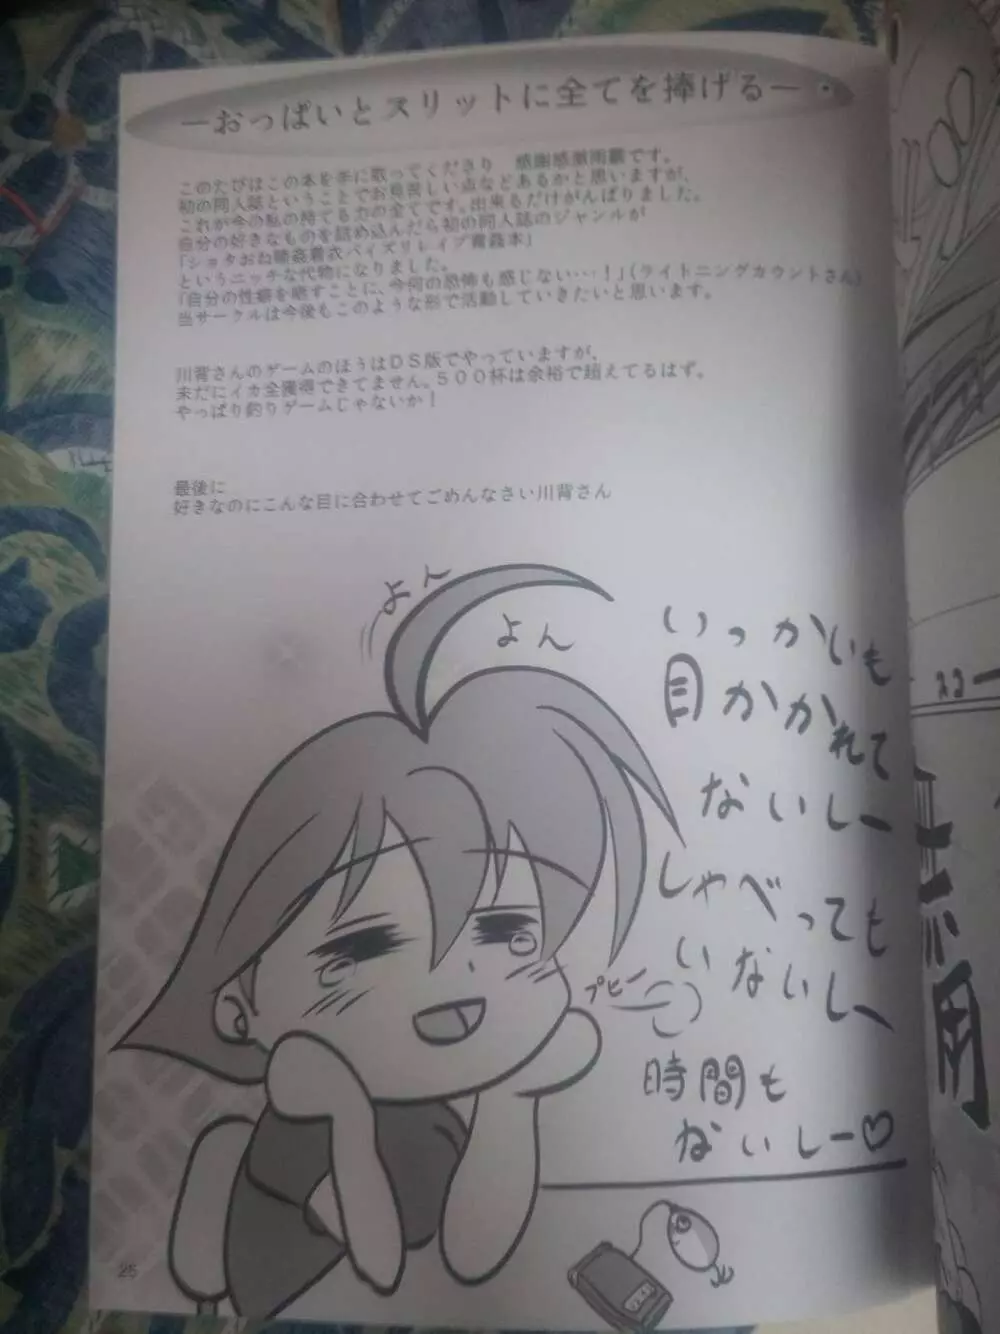 －おっぱいとスリットに全てを捧げる－
このたびはこの本を手に取ってくださり　感謝感激雨霰です。
初の同人誌ということでお見苦しい点などあるかと思いますが、
これが今の私の持てる力の全てです。出来るだけがんばりました。
自分の好きなものを詰め込んだら初の同人誌のジャンルが
「ショタおね睡姦着衣パイズリレイプ青姦本」
というニッチな代物になりました。
「自分の性癖を晒すことに、今何の恐怖も感じない…！」(ライトニングカウントさん)
当サークルは今後もこのような形で活動していきたいと思います。
川背さんのゲームのほうはＤＳ版でやっていますが、
未だにイカ全獲得できてません。５００杯は余裕で超えてるはず。
やっぱり釣りゲームじゃないか！
最後に
好きなのにこんな目に合わせてごめんなさい川背さん
よん
よん
いっかいも
目かかれて
ないしー
しゃべっても
いないしー
プヒー
時間も
ないしー♡
25